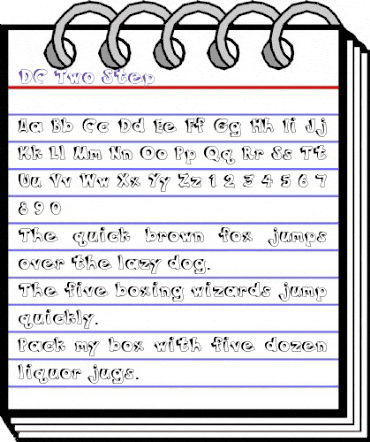 DC Two Step
Aa Bb Cc Dd Ee Ff Gg Hh Ii Jj
Kk Ll Mm Nn Oo Pp Qq Rr Ss Tt
Uu Vv Ww Xx Yy Zz 1 2 3 4 5 6 7
8 9 0
The quick brown fox jumps
over the lazy dog.
The five boxing wizards jump
quickly.
Pack my box with five dozen
liquor jugs.